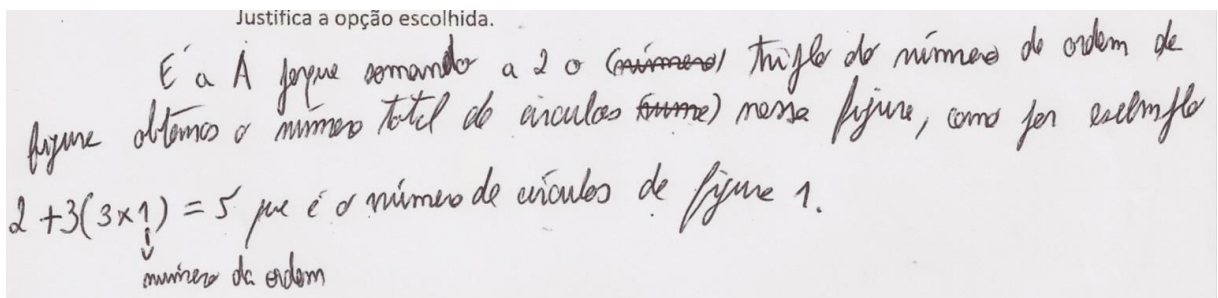 Justifica a opção escolhida.
É a A porque somando a 2 o (número) triplo do número de ordem de
figura obtemos o número total de circulos (nume) nessa figura, como por exemplo
2 + 3(3×1) = 5 que é o número de círculos de figura 1.
número da ordem